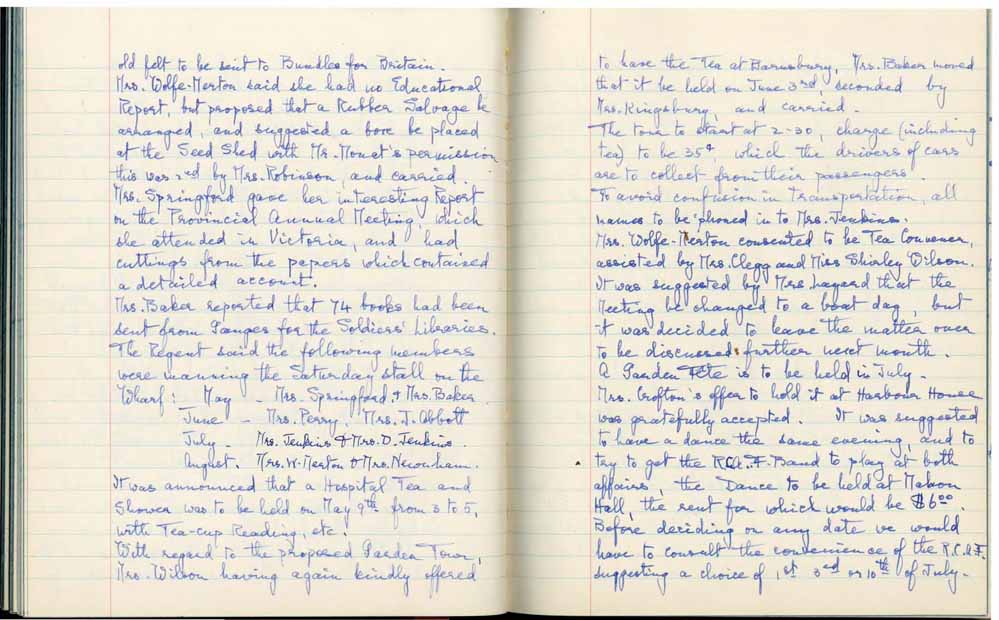 old felt to be sent to Bundles for Britain.
Mrs. Wolfe-Merton said she had no Educational
Report, but proposed that a Rubber Salvage be
arranged, and suggested a box be placed
at the Seed Shed with Mr. Mouat's permission
this was 2nd by Mrs. Robinson, and carried.
Mrs. Springford gave her interesting Report
on the Provincial Annual Meeting, which
she attended in Victoria, and had
cuttings from the papers which contained
a detailed account.
Mrs. Baker reported that 74 books had been
sent from Ganges for the Soldiers' Libraries.
The Regent said the following members
were manning the Saturday stall on the
Wharf: May - Mrs. Springford & Mrs. Baker.
June - Mrs. Perry, Mrs. J. Abbott
July - Mrs. Jenkins & Mrs. D. Jenkins.
August. Mrs. W. Merton & Mrs. Newnham.
It was announced that a Hospital Tea and
Shower was to be held on May 9th from 3 to 5,
with Tea-cup Reading, etc.
With regard to the proposed Garden Town,
Mrs. Wilson having again kindly offered
to have the Tea at Barnsbury, Mrs. Baker moved
that it be held on June 3rd, seconded by
Mrs. Kingsbury, and carried.
The tour to start at 2-30, charge (including
tea) to be 35¢, which the drivers of cars
are to collect from their passengers.
To avoid confusion in Transportation, all
names to be 'phoned in to Mrs. Jenkins.
Mrs. Wolfe-Merton consented to be Tea Convener,
assisted by Mrs. Clegg and Miss Shirley Wilson.
It was suggested by Mrs. Layard that the
Meeting be changed to a boat day, but
it was decided to leave the matter over
to be discussed further next month.
A Garden Fete is to be held in July.
Mrs. Crofton's offer to hold it at Harbour House
was gratefully accepted. It was suggested
to have a dance the same evening, and to
try to get the R.C.A.F. Band to play at both
affairs, the Dance to be held at Mahon
Hall, the rent for which would be $6.00.
Before deciding on any date we would
have to consult the convenience of the R.C.A.F.
suggesting a choice of 1st 3rd or 10th of July.